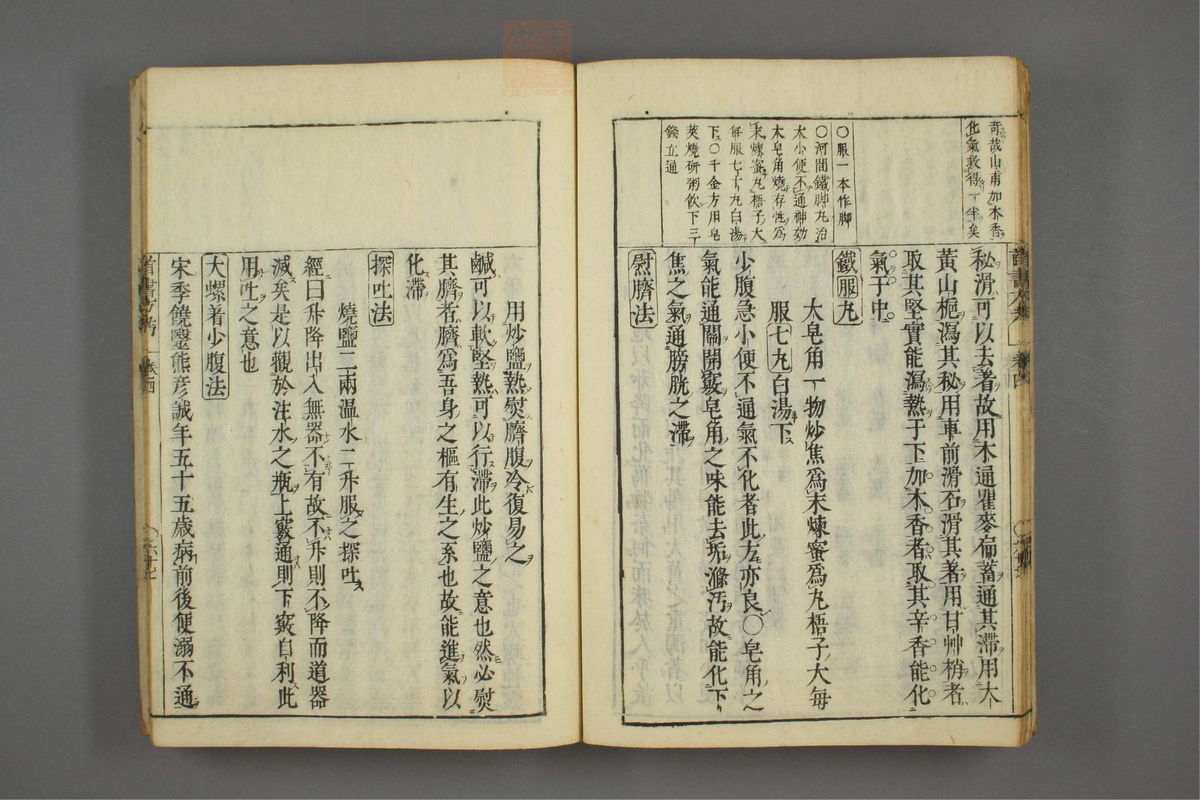 奇哉山甫加木香
化氣敎得一半矣
〇服一本作脚
〇河間鐵脚丸治
大小便不通神効
大皂角燒存性爲
末煉蜜丸梧子大
每服七十丸白湯
下〇千金方用皂
莢燒研粥飲下三
錢立通
秘滑可以去著故用木通瞿麥扁蓄通其滯用大
黃山梔瀉其秘用車前滑石滑其著用甘艸梢者
取其堅實能瀉熱于下加木香者取其辛香能化
氣于中
鐵服丸
大皂角一物炒焦爲末煉蜜爲丸梧子大每
服七丸白湯下
少腹急小便不通氣不化者此方亦良〇皂角之
氣能通關開竅皂角之味能去垢滌汚故能化下
焦之氣通膀胱之滯
熨臍法
用炒鹽熱熨臍腹冷復易之
鹹可以軟堅熱可以行滯此炒鹽之意也然必熨
其臍者臍爲吾身之樞有生之系也故能進氣以
化滯
探吐法
燒鹽二兩温水二升服之探吐
經曰升降出入無器不有故不升則不降而道器
滅矣是以觀於注水之瓶上竅通則下竅自利此
用吐之意也
大螺着少腹法
宋季饒醫熊彥誠年五十五歲病前後便溺不通
首書方考
卷四
六十七